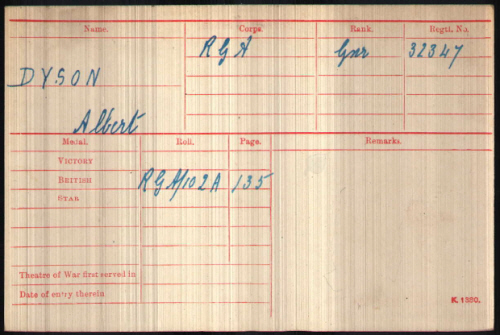 Name. Corps. Rank. Regtl. No.
R G A Gnr 32347
DYSON
Albert
Medal. Roll. Page. Remarks.
VICTORY
BRITISH RGA/102A 135
STAR
Theatre of War first served in
Date of entry therein
K. 1380.